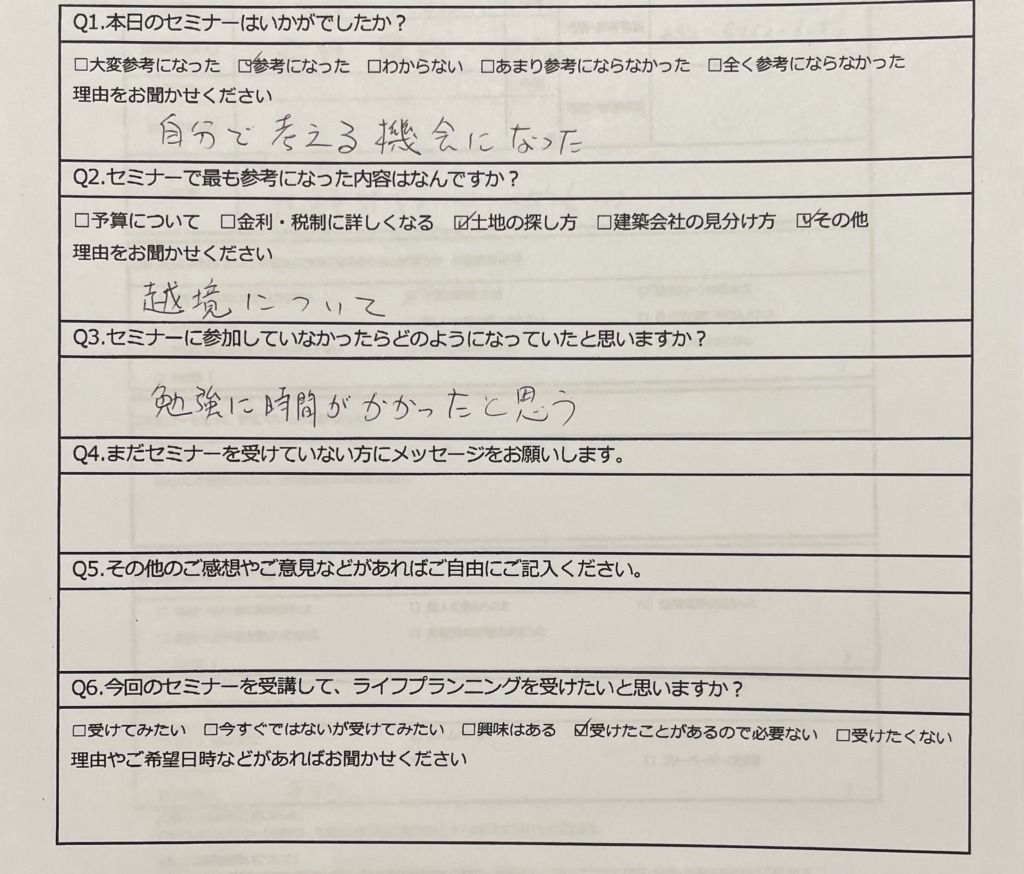 Q1.本日のセミナーはいかがでしたか？
□大変参考になった ☑参考になった □わからない □あまり参考にならなかった □全く参考にならなかった
理由をお聞かせください
自分で考える機会になった
Q2.セミナーで最も参考になった内容はなんですか？
□予算について □金利・税制に詳しくなる ☑土地の探し方 □建築会社の見分け方 ☑その他
理由をお聞かせください
越境について
Q3.セミナーに参加していなかったらどのようになっていたと思いますか？
勉強に時間がかかったと思う
Q4.まだセミナーを受けていない方にメッセージをお願いします。
Q5.その他のご感想やご意見などがあればご自由にご記入ください。
Q6.今回のセミナーを受講して、ライフプランニングを受けたいと思いますか？
□受けてみたい □今すぐではないが受けてみたい □興味はある ☑受けたことがあるので必要ない □受けたくない
理由やご希望日時などがあればお聞かせください